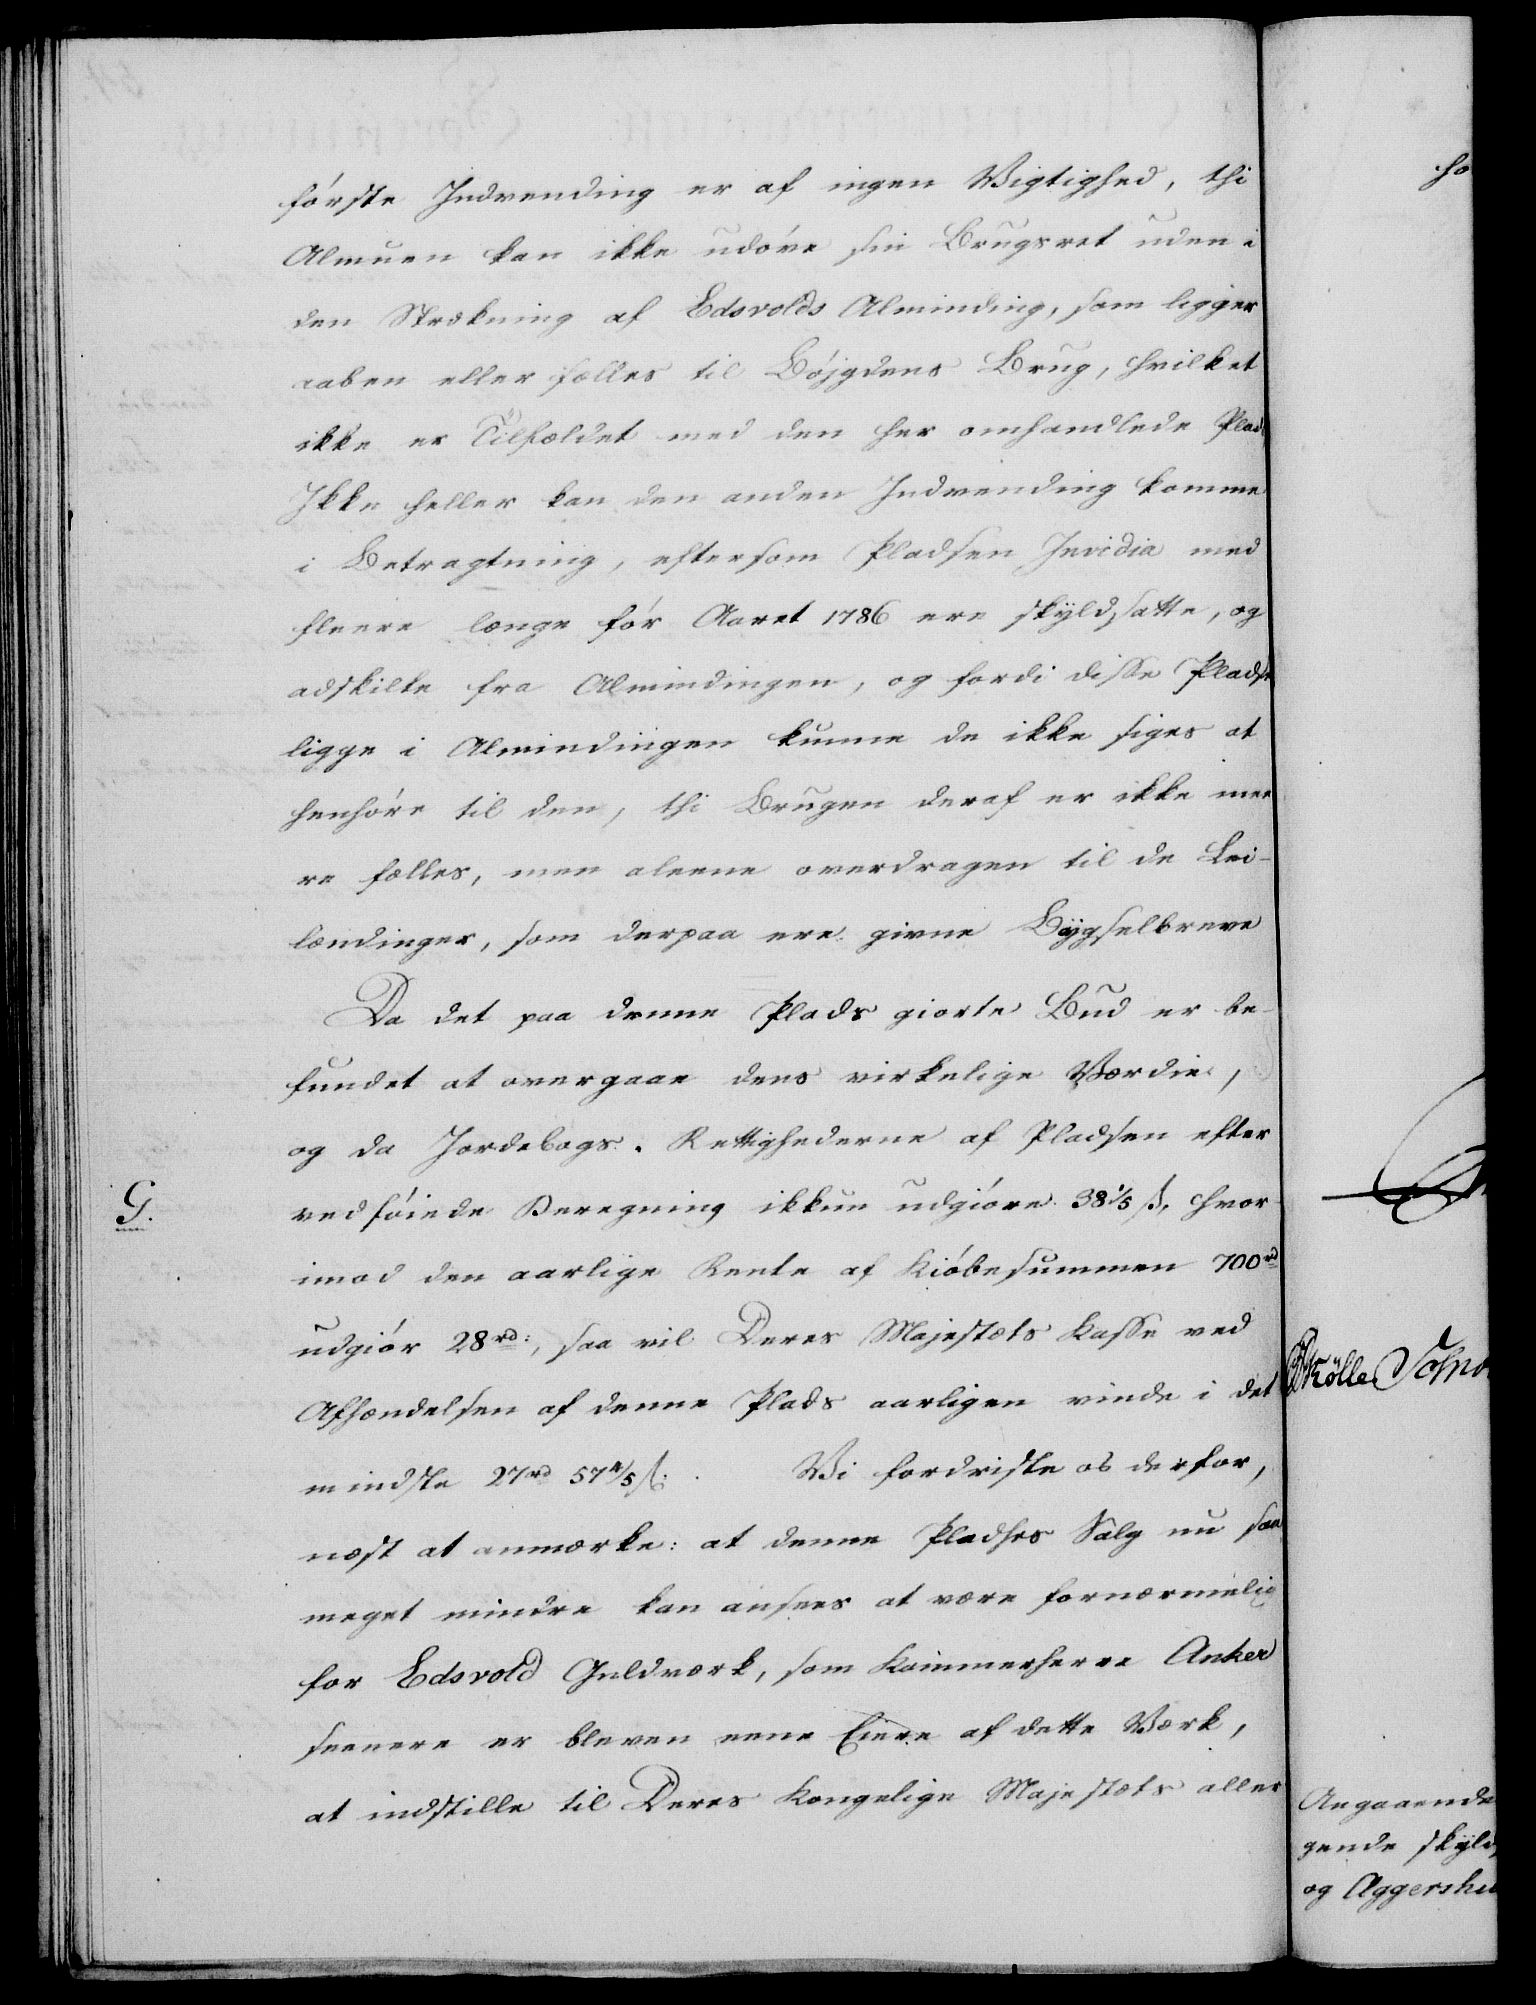 förste Indvending er af ingen Wigtighed, thi
Almuen kan ikke udöve sin Brugsret uden i
den Strækning af Edsvolds Alminding, som ligger
aaben eller fælles til Böjgdens Brug, hvilket
ikke er Tilfældet med den her omhandlede Plads
Ikke heller kan den anden Indvending komme
i Betragtning, eftersom Pladsen Invidia med
fleere længe för Aaret 1786 ere skyldsatte, og
adskilte fra Almindingen, og fordi disse Pladse
ligge i Almindingen kunne de ikke siges at
henhöre til den, thi Brugen deraf er ikke mee
re fælles, men aleene overdragen til de Lei-
lændinger, som derpaa ere givne Bÿgselbreve
Da det paa denne Plads giorte Bud er be-
fundet at overgaae dens virkelige Værdie,
og da Jordebogs. Rettighederne af Pladsen efter
G.
vedföiede Beregning ikkun udgiöre 38 1/5 ß, hvor-
imod den aarlige Rente af Kiöbesummen 700 rd
udgiör 28 rd:, saa vil Deres Majestæts Kasse ved
Afhændelsen af denne Plads aarligen vinde i det
mindste 27 rd 57 4/5 ß. Wi fordriste os derfor,
næst at anmærke: at denne Pladses Salg nu saa
meget mindre kan ansees at være fornærmelig
for Edsvold Guldværk, som Kammerherre Anker
seenere er bleven eene Eiere af dette Værk,
at indstille til Deres Kongelige Majestæts aller
ho
Kölle
Angaaende
gende skyld
og Aggershu